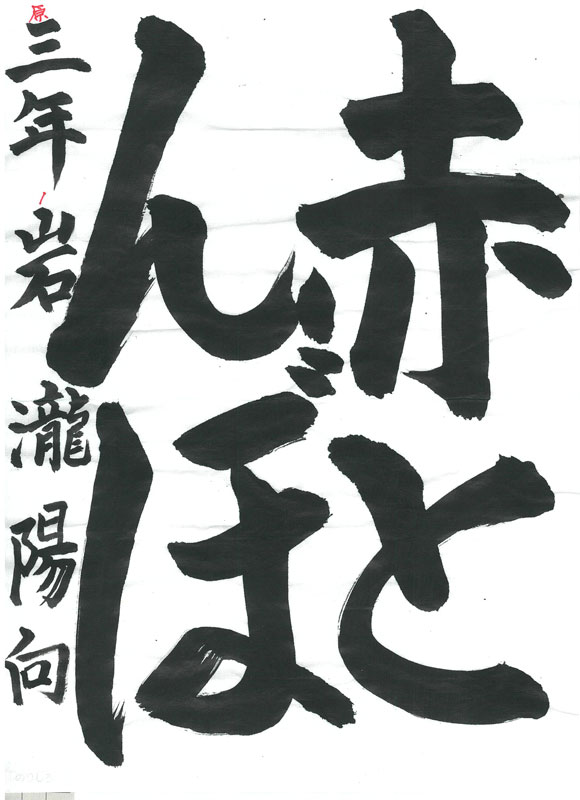 赤と
んぼ
原
三年岩瀧陽向